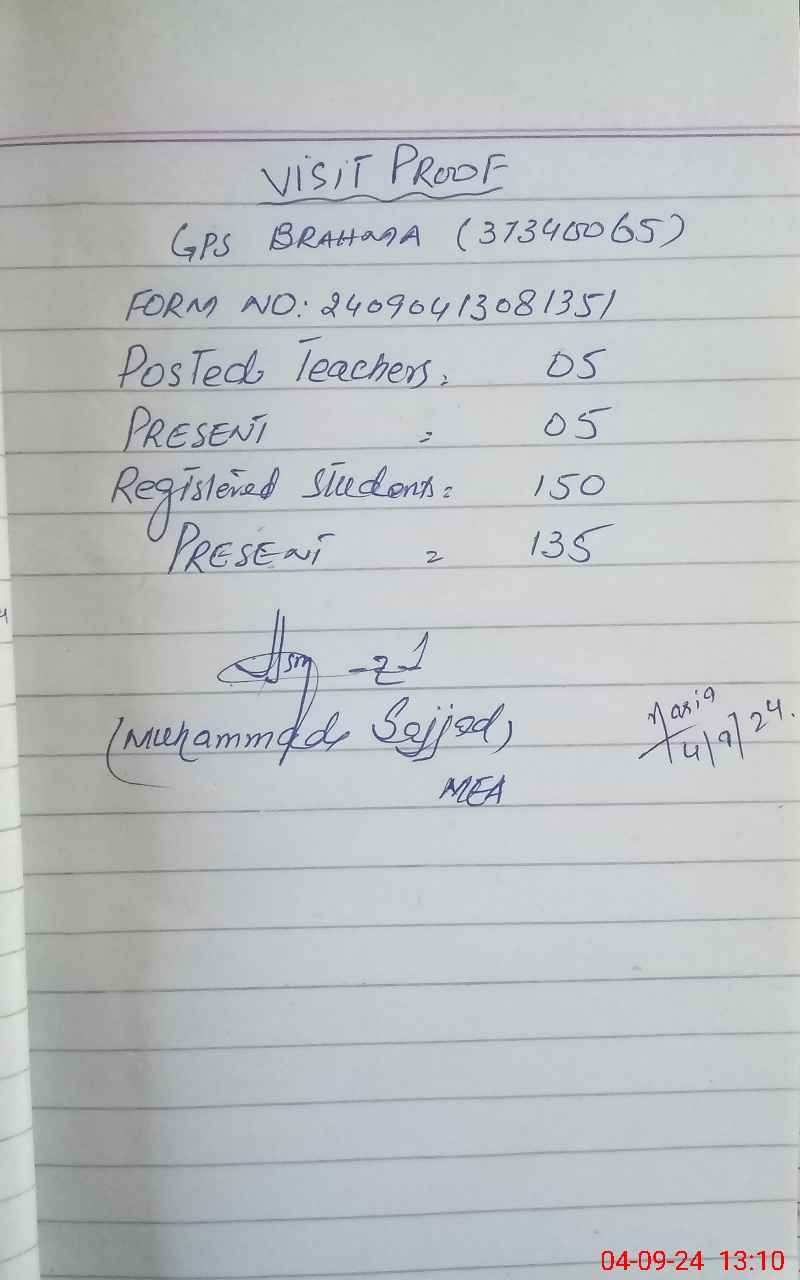 VISIT PROOF
GPS BRAHMA (37340065)
FORM NO: 24090413081351
Posted Teachers = 05
PRESENT = 05
Registered students = 150
PRESENT = 135
(Muhammad Sajjad)
MEA
Maria
4/9/24.
04-09-24 13:10